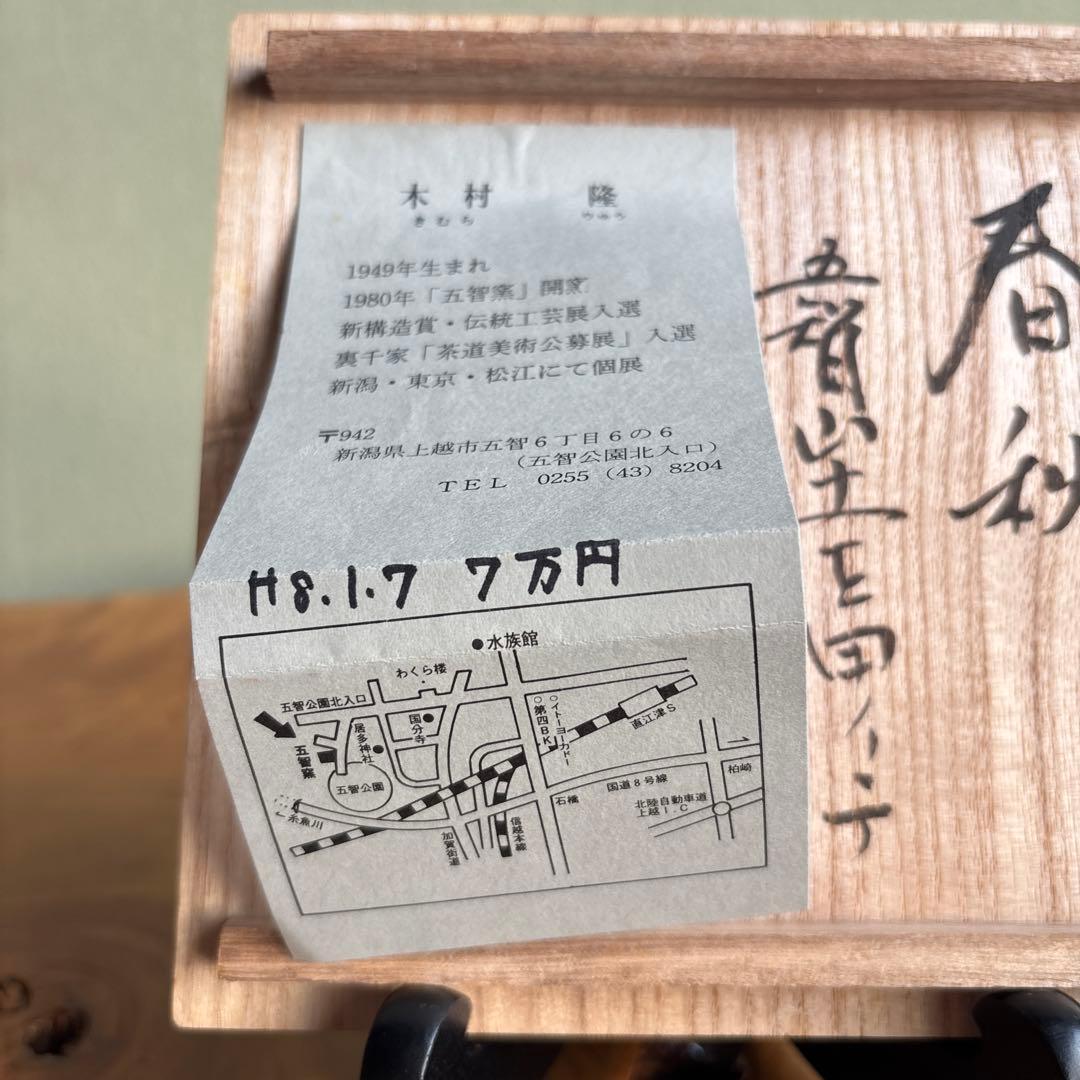 木村 隆
きむら りゅう
1949年生まれ
1980年「五智窯」開窯
新構造賞・伝統工芸展入選
裏千家「茶道美術公募展」入選
新潟・東京・松江にて個展
〒942
新潟県上越市五智6丁目6の6
(五智公園北入口)
TEL 0255(43)8204
H8.1.7 7万円
●水族館
わくら楼
五智公園北入口
国分寺
居多神社
五智窯
五智公園
糸魚川
第四BK
イトーヨーカドー
直江津S
柏崎
国道8号線
石橋
北陸自動車道
上越I.C
加賀街道
信越本線
春秋
五智山土